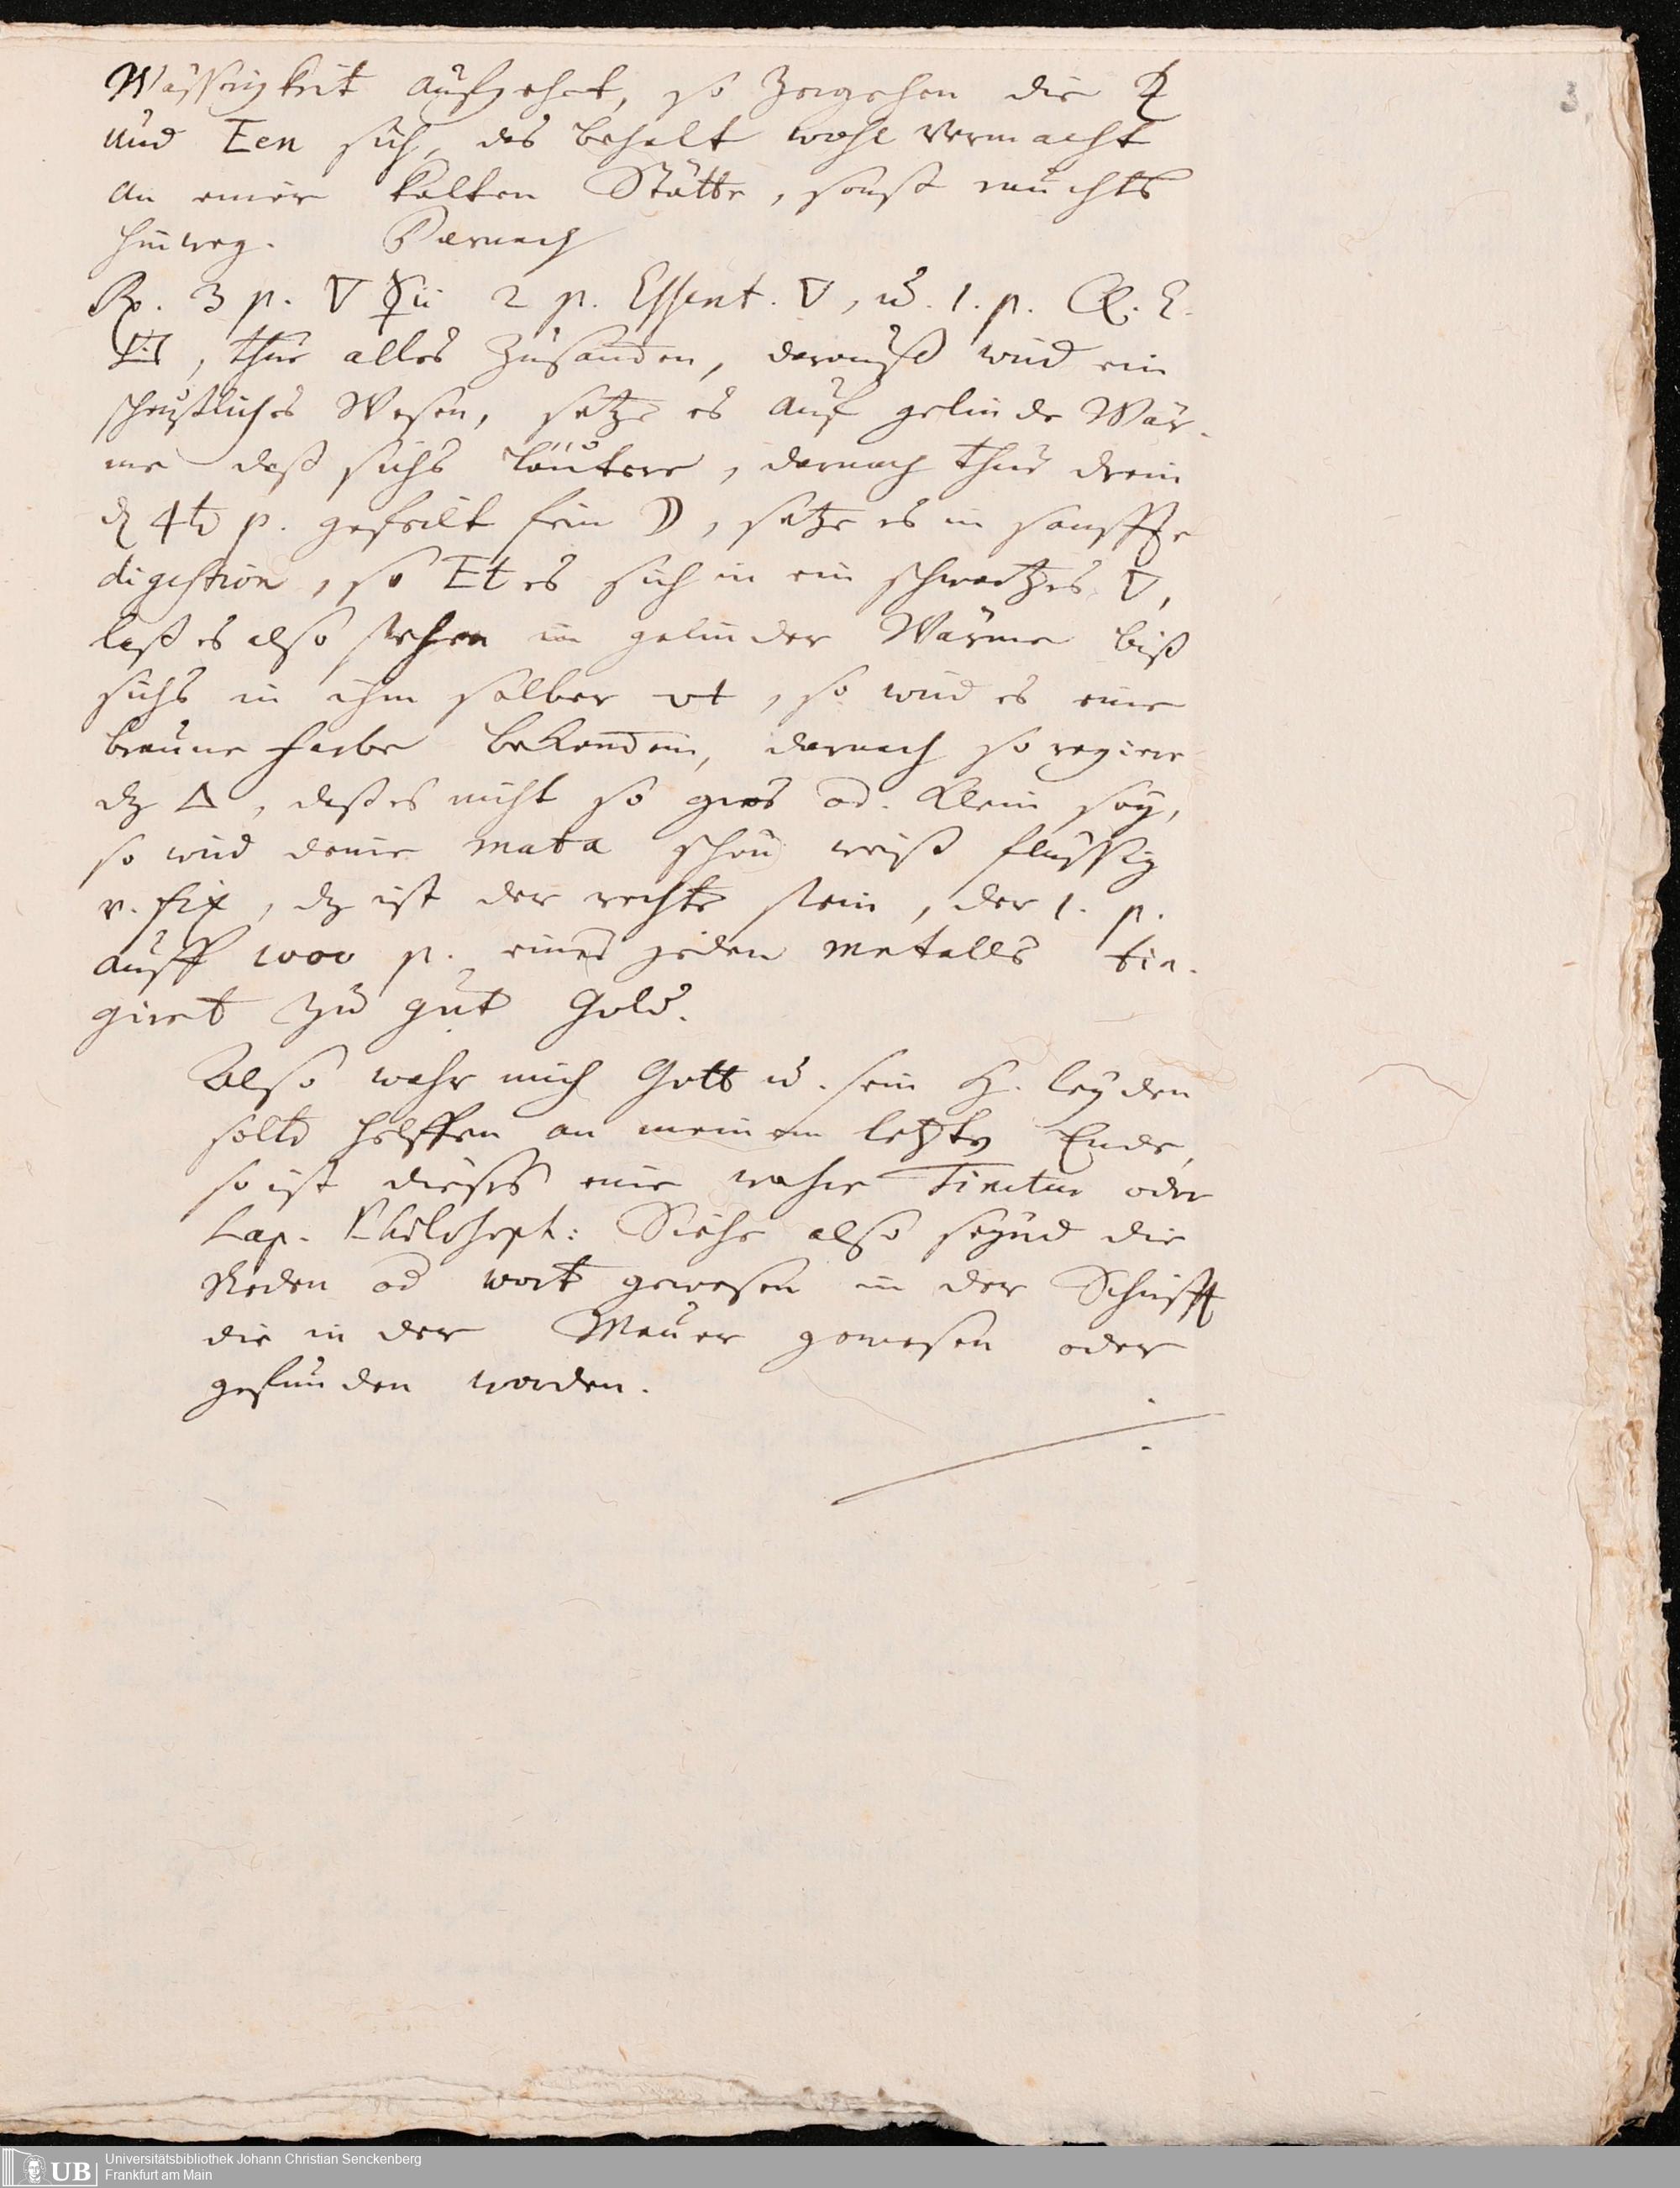 Wässrigkeit aufgehet, so Zergehen die ☿
und Een sich, das behalt wohl vermacht
an einer kalten Stätte, sonst rauchts
hinweg. Darnach
Rp. 3 p. 🜄 ☿ii 2 p. Essent. 🜄, u. 1. p.
, thue alles Zusamen, darauß wird ein
scheußliches Wesen, setze es auf gelinde Wär-
me daß sichs läutere, darnach thue drein
dz 4te p. gefeilt fein ☽, setze es in sanffte
digestion, so Et es sich in ein schwartzes 🜄,
laß es also stehen in gelinder Wärme biß
sichs in ihm selber , so wird es eine
braune farbe bekommen, darnach so regiere
dz 🜂, daß es nicht so gros od. klein sey,
so wird deine mata schön weiß flüssig
v. fix, dz ist der rechte stein, der 1. p.
auff 1000 p. eines jeden metalls tin-
girt zu gut Gold.
Also wahr mich Gott u. sein H. leyden
solte helffen an meinem letzten Ende,
so ist dieses eine wahre Tinctur oder
Lap. Philosoph: Siehe also seynd die
Reden od wort gewesen in der Schrifft
die in der Mauer gewesen oder
gefunden worden.
3
UB
Universitätsbibliothek Johann Christian Senckenberg
Frankfurt am Main